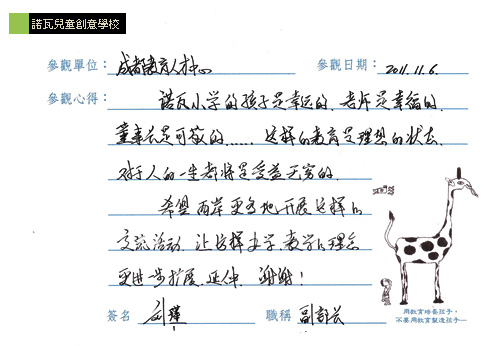 諾瓦兒童創意學校
參觀單位： 成都教育人才中心 參觀日期： 2011.11.6.
參觀心得： 诺瓦小学的孩子是幸运的，老师是幸福的，
董事长是可敬的……这样的教育是理想的状态，
对于人的一生都将是受益无穷的。
希望两岸更多地开展这样的
交流活动，让这样办学、教学的理念
更进一步扩展、延伸，谢谢！
用教育培養孩子，
不要用教育製造孩子—
簽名 刘 職稱 副